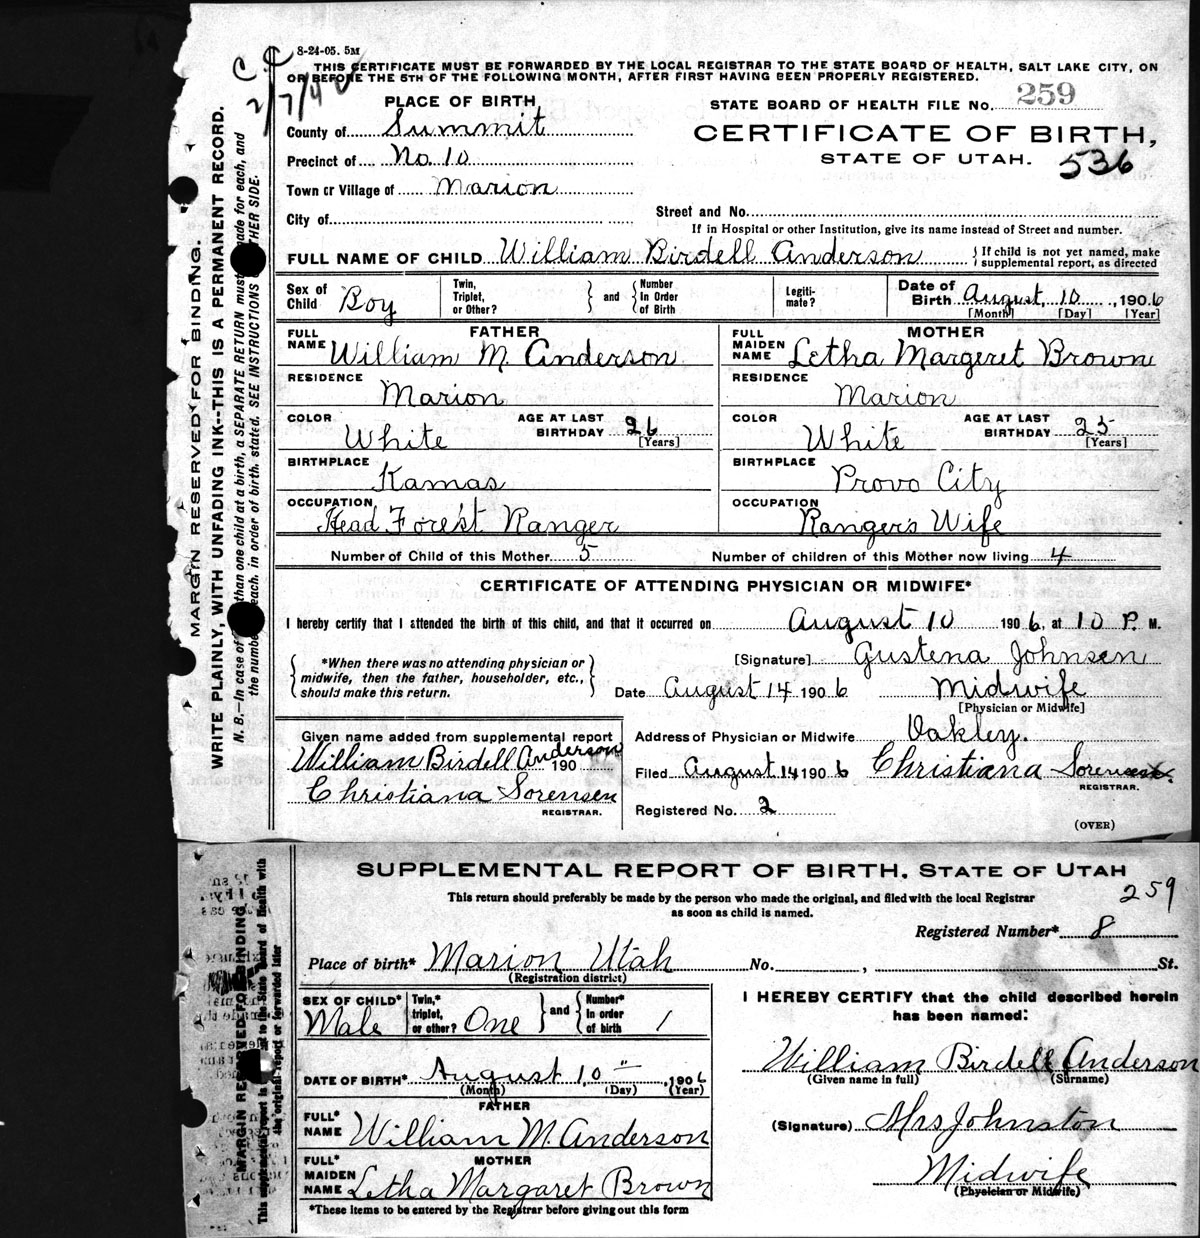 8-24-05. 5M
C. C.
2/7/42
THIS CERTIFICATE MUST BE FORWARDED BY THE LOCAL REGISTRAR TO THE STATE BOARD OF HEALTH, SALT LAKE CITY, ON
OR BEFORE THE 5TH OF THE FOLLOWING MONTH, AFTER FIRST HAVING BEEN PROPERLY REGISTERED.
PLACE OF BIRTH,
STATE BOARD OF HEALTH FILE No. 259
County of Summit
CERTIFICATE OF BIRTH,
STATE OF UTAH. 536
Precinct of No. 10
Town or Village of Marion
City of
Street and No.
If in Hospital or other Institution, give its name instead of Street and number.
FULL NAME OF CHILD William Birdell Anderson { If child is not yet named, make supplemental report, as directed
Sex of Child Boy
Twin, Triplet, or Other? } and { Number In Order of Birth
Legitimate?
Date of Birth August, 10, 1906
[Month] [Day] [Year]
FATHER
FULL NAME William M. Anderson
MOTHER
FULL MAIDEN NAME Letha Margeret Brown
RESIDENCE Marion
RESIDENCE Marion
COLOR White AGE AT LAST BIRTHDAY 26 [Years]
COLOR White AGE AT LAST BIRTHDAY 25 [Years]
BIRTHPLACE Kamas
BIRTHPLACE Provo City
OCCUPATION Head Forest Ranger
OCCUPATION Rangers Wife
Number of Child of this Mother 5 Number of children of this Mother now living 4
CERTIFICATE OF ATTENDING PHYSICIAN OR MIDWIFE*
I hereby certify that I attended the birth of this child, and that it occurred on August 10 1906, at 10 P. M.
{ *When there was no attending physician or
midwife, then the father, householder, etc.,
should make this return. }
[Signature] Gustena Johnsen
Date August 14 1906 Midwife
[Physician or Midwife]
Given name added from supplemental report
William Birdell Anderson 190
Christiana Sorensen
REGISTRAR.
Address of Physician or Midwife Oakley.
Filed August 14 1906 Christiana Sorensen.
REGISTRAR.
Registered No. 2
(OVER)
MARGIN RESERVED FOR BINDING.
WRITE PLAINLY, WITH UNFADING INK--THIS IS A PERMANENT RECORD.
SUPPLEMENTAL REPORT OF BIRTH, STATE OF UTAH
259
This return should preferably be made by the person who made the original, and filed with the local Registrar
as soon as child is named.
Registered Number* 8
Place of birth* Marion Utah No. , St.
(Registration district)
SEX OF CHILD* Male
Twin,* triplet, or other? One } and { Number* in order of birth 1
I HEREBY CERTIFY that the child described herein
has been named:
DATE OF BIRTH* August 10 1906
(Month) (Day) (Year)
William Birdell Anderson
(Given name in full) (Surname)
FATHER
FULL* NAME William M. Anderson
(Signature) Mrs Johnston
MOTHER
FULL* MAIDEN NAME Letha Margaret Brown
Midwife
(Physician or Midwife)
*These items to be entered by the Registrar before giving out this form